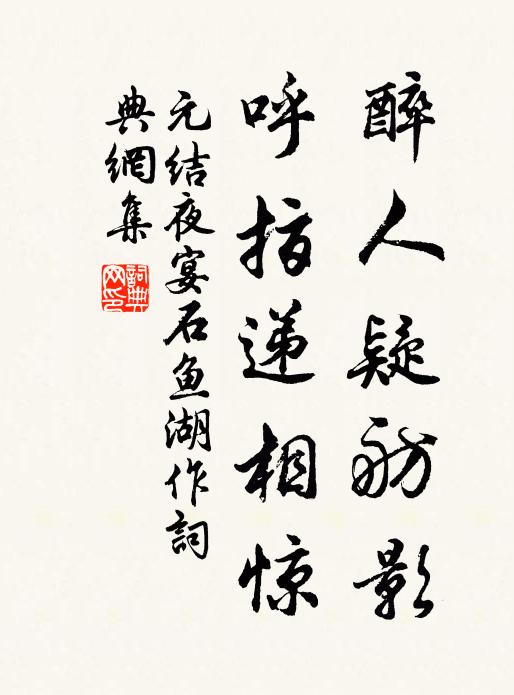 醉人疑舫影
呼指递相惊
元结夜宴石鱼湖作詞
典網集
詞典
网印